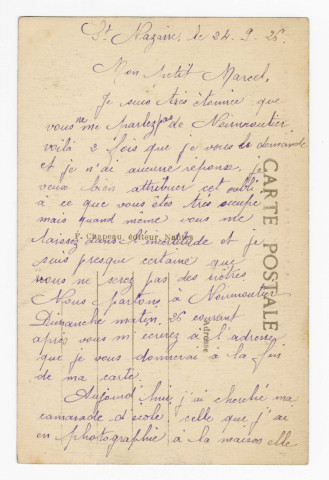 St Nazaire, le 24-9-26.
Mon petit Marcel,
Je suis très étonnée que
vous ne me parlez pas de Noirmoutier
voilà 2 fois que je vous le demande
et je n'ai aucune réponse. Je
veux bien attribuer cet oubli
à ce que vous êtes très occupé
mais quand même vous me
laissez dans l'incertitude et je
suis presque certaine que
vous ne serez pas des nôtres
Nous partons à Noirmoutier
Dimanche matin, 26 courant
après vous m'écrirez à l'adresse
que je vous donnerai à la fin
de ma carte.
Aujourd'hui j'ai cherché ma
camarade d'école celle que j'ai
en photographie à la maison elle
CARTE POSTALE
F. Chapeau, éditeur, Nantes
Adresse